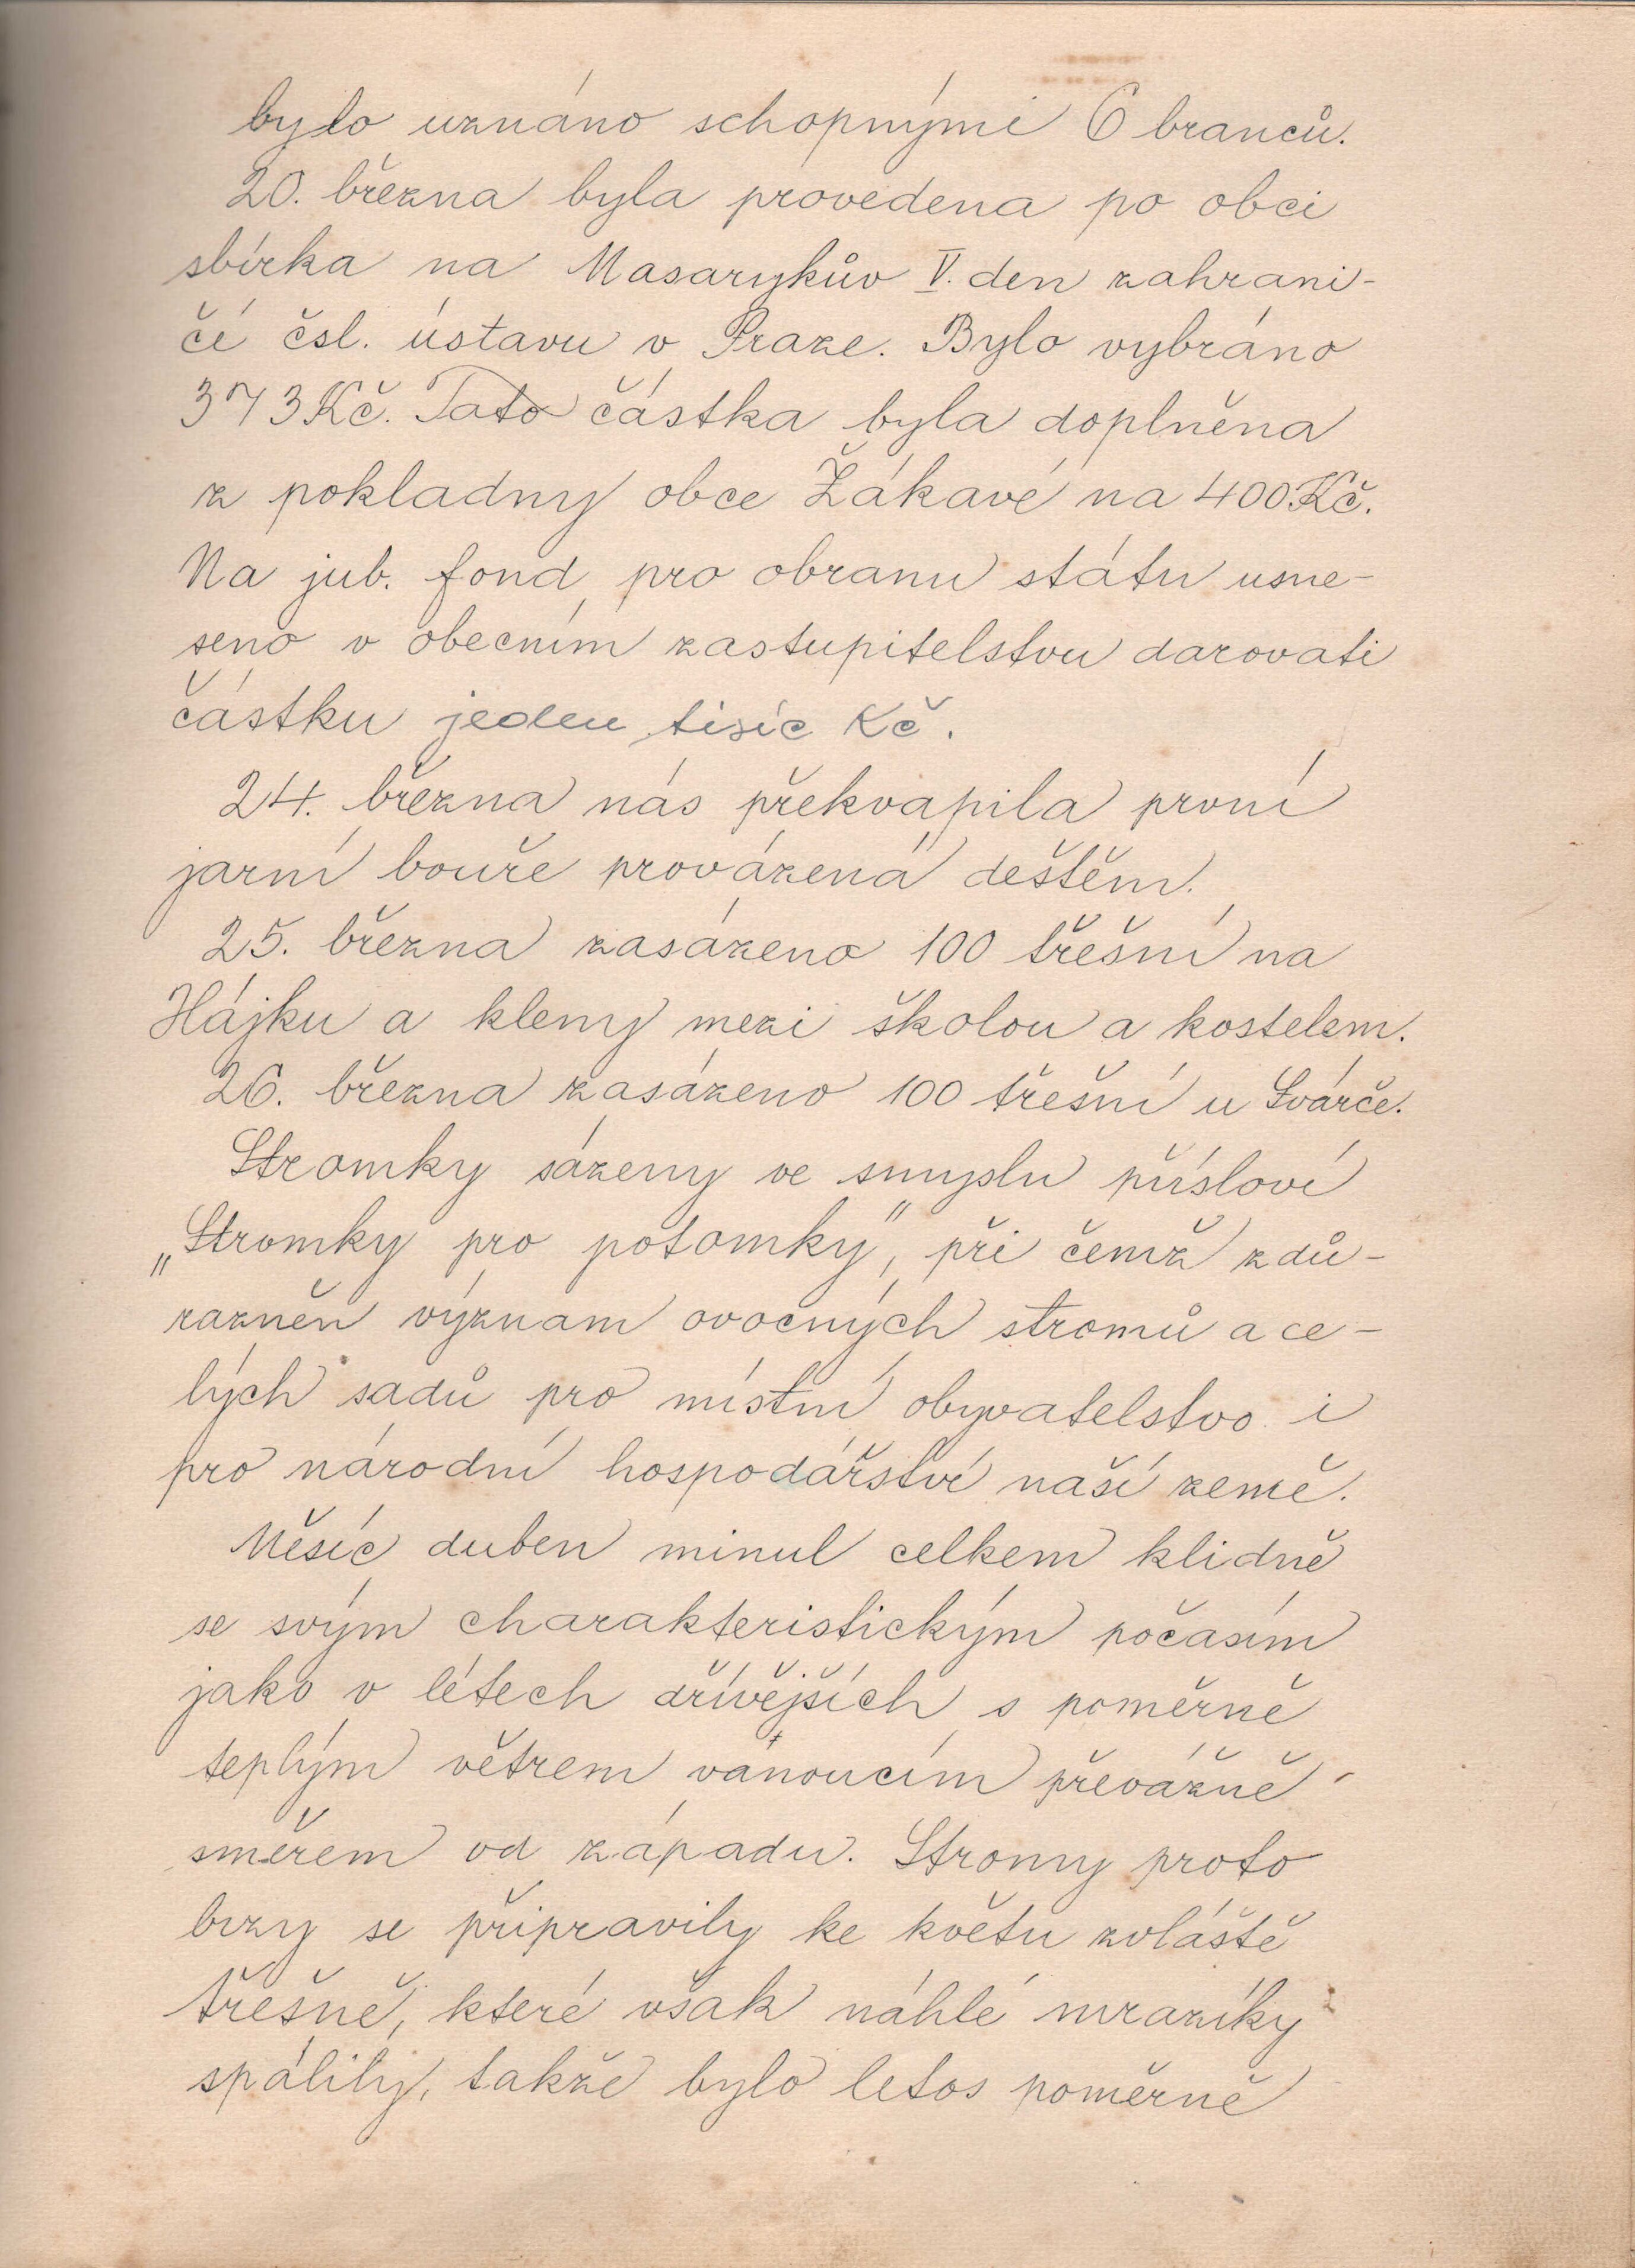 bylo uznáno schopnými 6 branců.
20. března byla provedena po obci
sbírka na Masarykův V. den zahrani-
čí čsl. ústavu v Praze. Bylo vybráno
373 Kč. Tato částka byla doplněna
z pokladny obce Žákavé na 400 Kč.
Na jub. fond pro obranu státu usne-
seno v obecním zastupitelstvu darovati
částku jeden tisíc Kč.
24. března nás překvapila první
jarní bouře provázená deštěm.
25. března zasázeno 100 třešní na
Hájku a kleny mezi školou a kostelem.
26. března zasázeno 100 třešní u Svárče.
Stromky sázeny ve smyslu přísloví
„Stromky pro potomky", při čemž zdů-
razněn význam ovocných stromů a ce-
lých sadů pro místní obyvatelstvo i
pro národní hospodářství naší země.
Měsíc duben minul celkem klidně
se svým charakteristickým počasím
jako v létech dřívějších s poměrně
teplým větrem vanoucím převážně
směrem od západu. Stromy proto
brzy se připravily ke květu zvláště
třešně, které však náhlé mrazíky
spálily, takže bylo letos poměrně